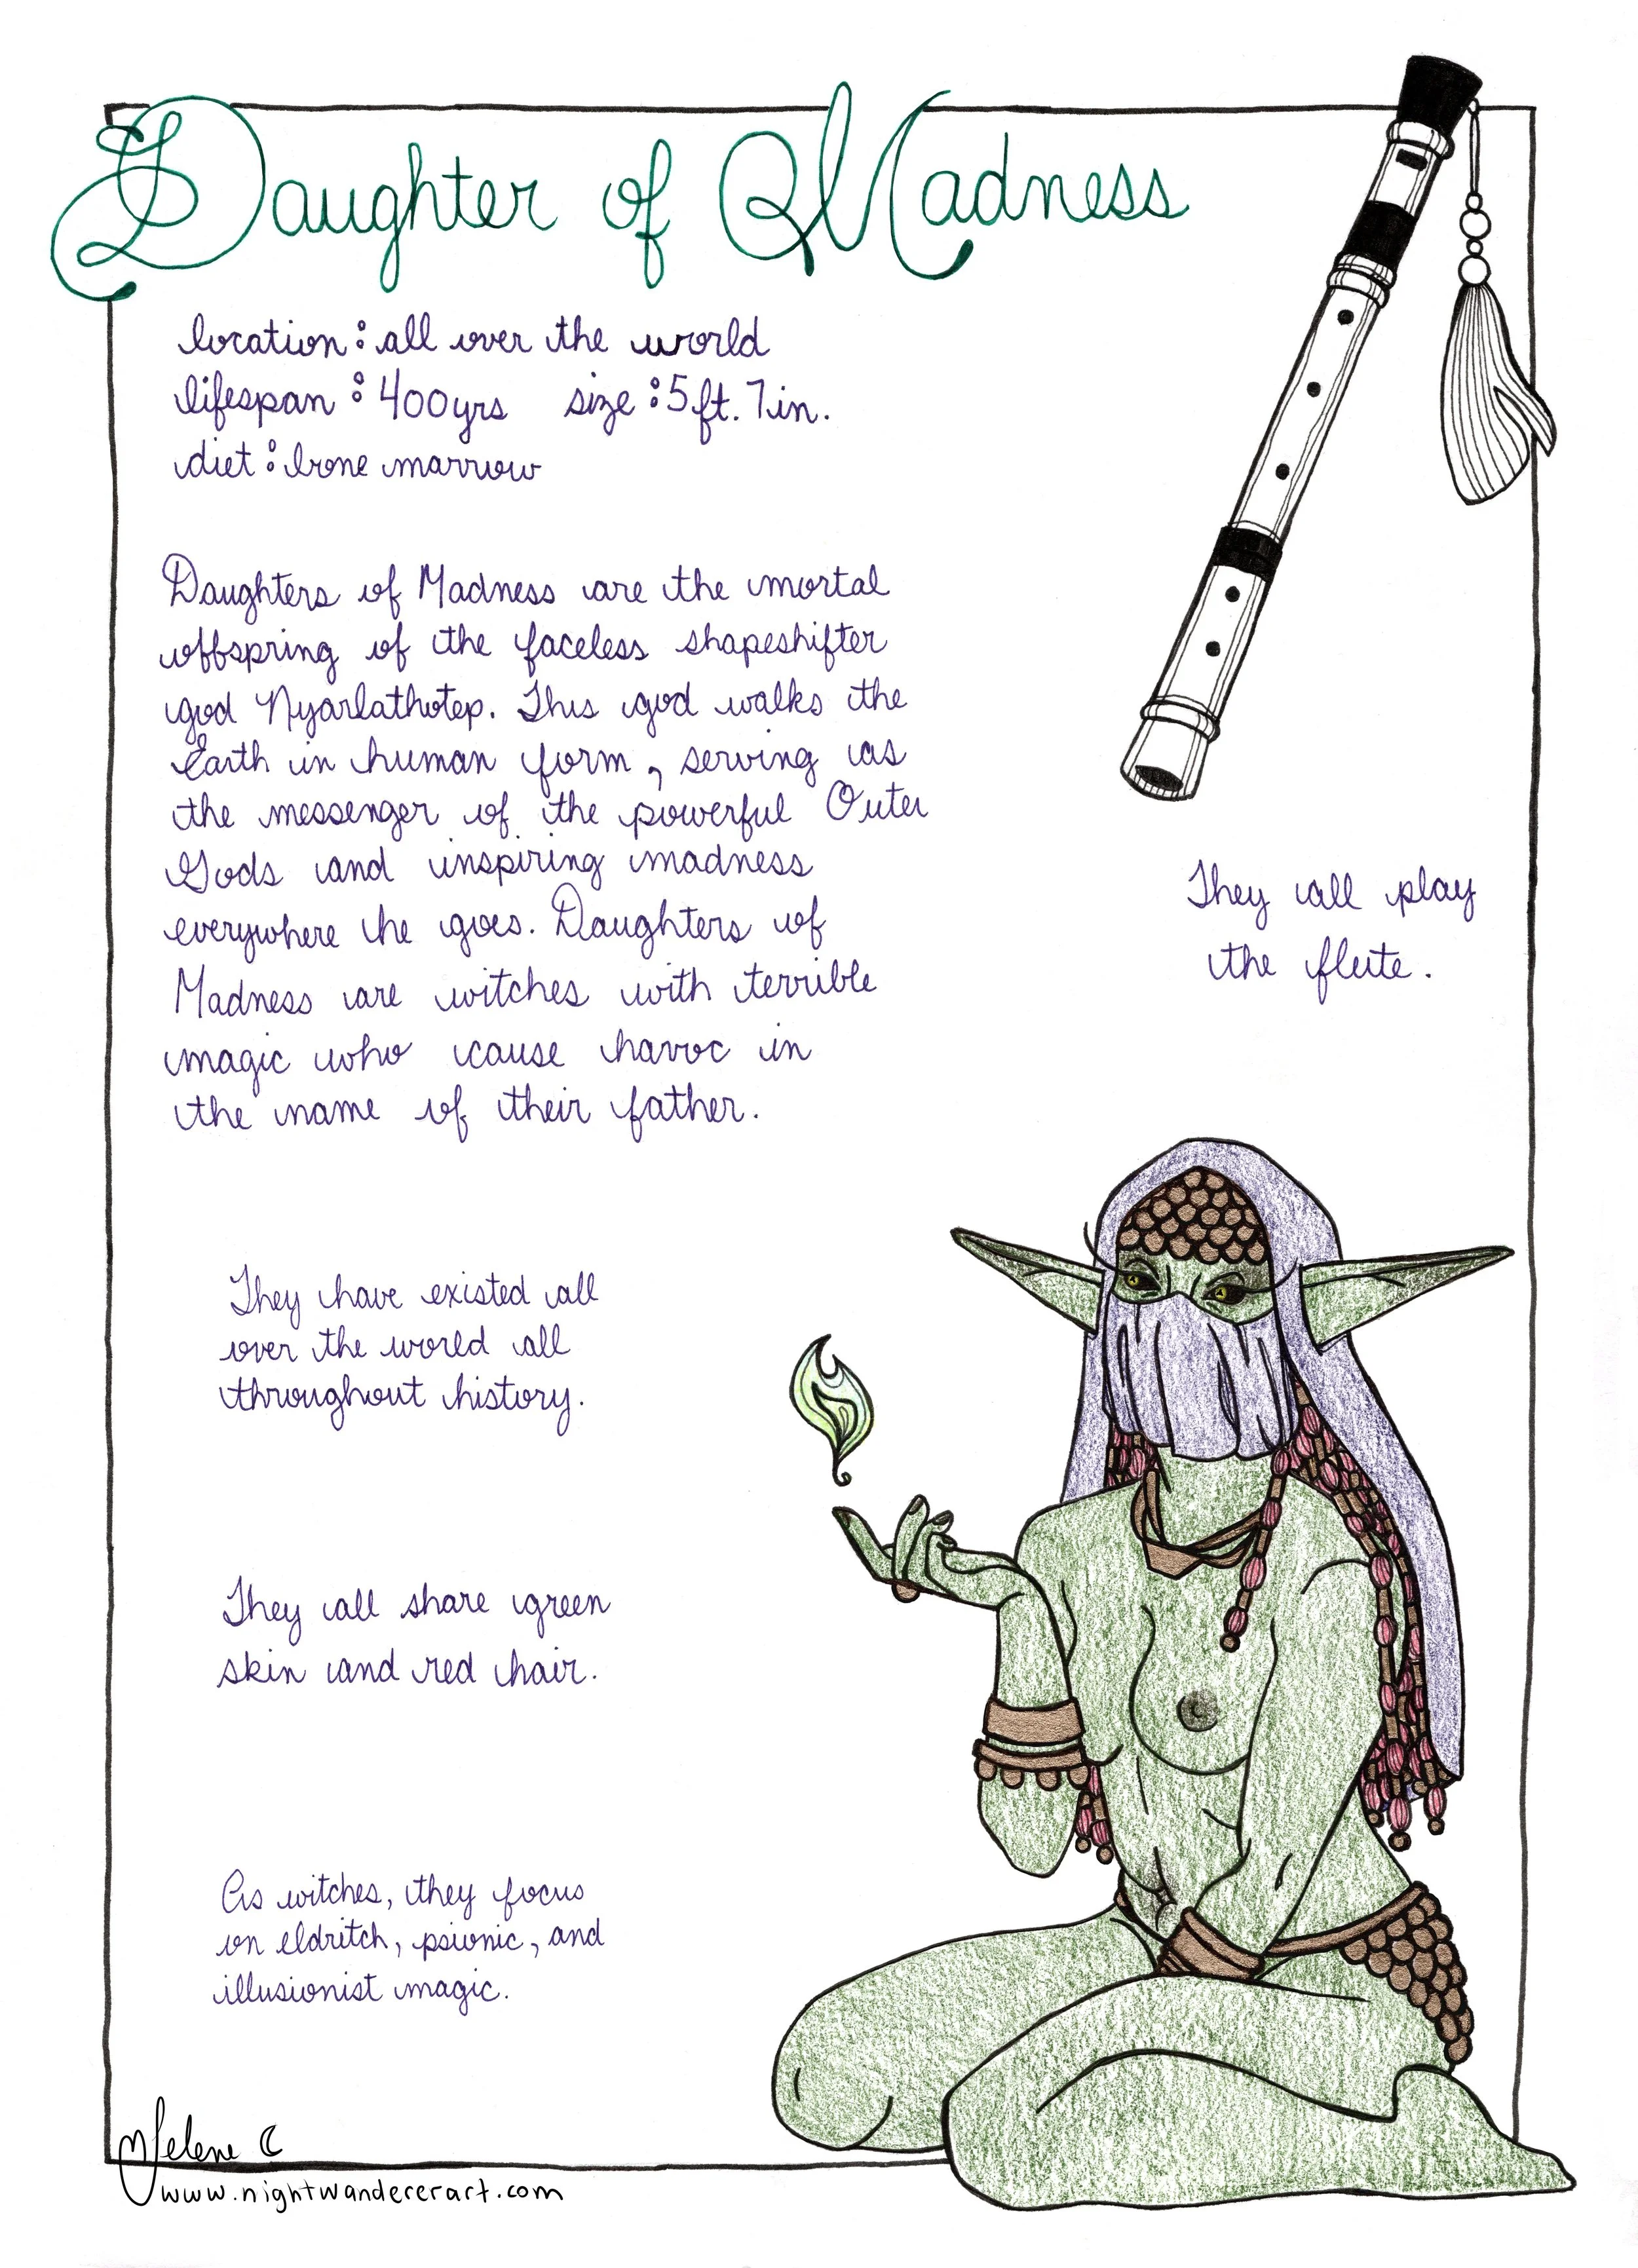 Daughter of Madness
location: all over the world
lifespan: 400yrs size: 5ft. 7in.
diet: bone marrow
Daughters of Madness are the mortal
offspring of the faceless shapeshifter
god Nyarlathotep. This god walks the
Earth in human form, serving as
the messenger of the powerful Outer
Gods and inspiring madness
everywhere he goes. Daughters of
Madness are witches with terrible
magic who cause havoc in
the name of their father.
They all play
the flute.
They have existed all
over the world all
throughout history.
They all share green
skin and red hair.
As witches, they focus
on eldritch, psionic, and
illusionist magic.
Selene C
www.nightwandererart.com